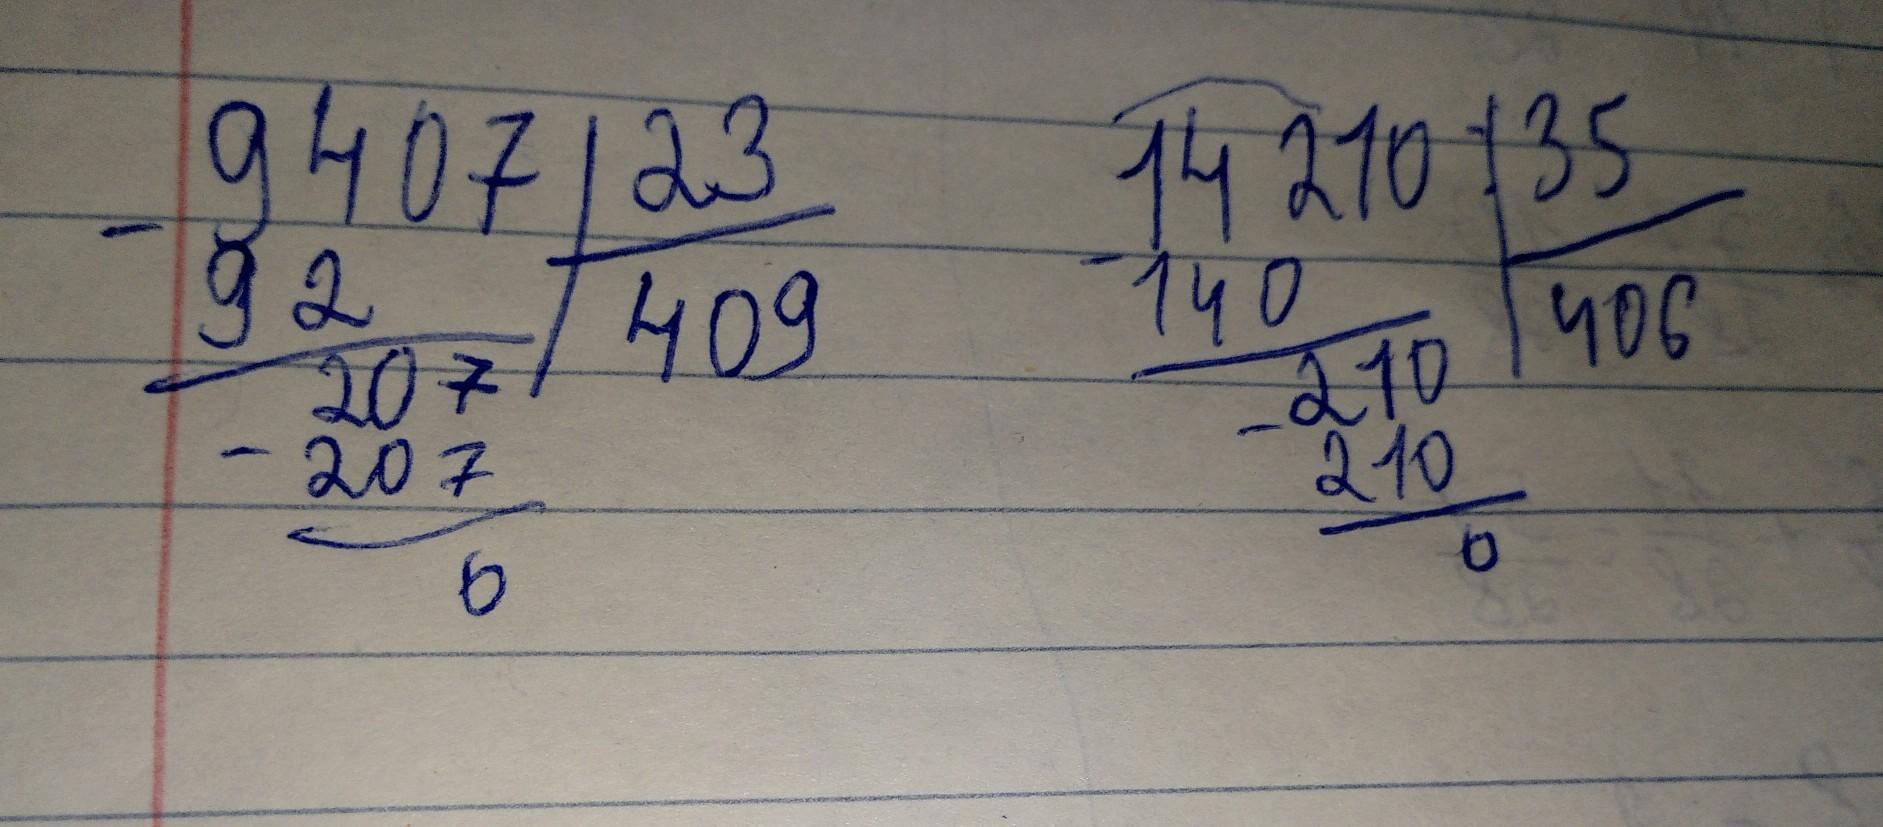 9407 | 23
- 92 | 409
207
- 207
0
14210 : | 35
- 140 | 406
- 210
210
0